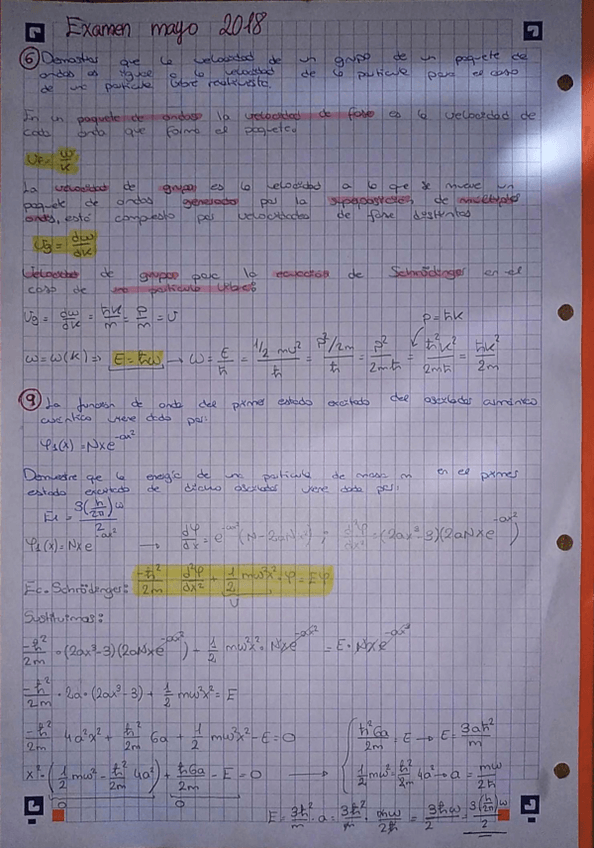 Examen mayo 2018
⑥ Demostrar que la velocidad de un grupo de un paquete de
ondas es igual a la velocidad de la partícula para el caso
de una partícula libre
En un paquete de ondas la velocidad de fase es la velocidad de
cada onda que forma el paquete.
Vf = ω/k
La velocidad de grupo es la velocidad a la que se mueve un
paquete de ondas generado por la superposición de múltiples
ondas, está compuesto por velocidades de fase distintas
Vg = dω/dk
Velocidad de grupo para la ecuación de Schrödinger en el
caso de una partícula libre:
Vg = dω/dk = ħk/m = P/m = v
p = ħk
ω = ω(k) => E = ħω → ω = E/ħ = (1/2 mv²)/ħ = (P²/2m)/ħ = P²/2mħ = ħ²k²/2mħ = ħk²/2m
⑨ La función de onda del primer estado excitado del oscilador armónico
cuántico viene dado por:
φ₁(x) = Nxe^-ax²
Demuestre que la energía de una partícula de masa m en el primer
estado excitado de dicho oscilador viene dada por:
E₁ = 3(h/2π)ω/2
φ₁(x) = Nxe^-ax² → dφ/dx = e^-ax² (N-2aNx²) ; d²φ/dx² = (2ax²-3)(2aNxe^-ax²)
Ec. Schrödinger: -ħ²/2m d²φ/dx² + 1/2 mω²x²·φ = Eφ
U
Sustituimos:
-ħ²/2m ·(2ax²-3)(2aNxe^-ax²) + 1/2 mω²x²· Nxe^-ax² = E· Nxe^-ax²
-ħ²/2m · 2a·(2ax²-3) + 1/2 mω²x² = E
-ħ²/2m 4a²x² + ħ²/2m 6a + 1/2 mω²x² - E = 0
x²·(1/2 mω² - ħ²/2m 4a²) + ħ²6a/2m - E = 0 →
0 0
ħ²6a/2m = E → E = 3aħ²/m
1/2 mω² = ħ²/2m 4a² → a = mω/2ħ
E = 3ħ²/m · a = 3ħ²/m · mω/2ħ = 3ħω/2 = 3(h/2π)ω/2